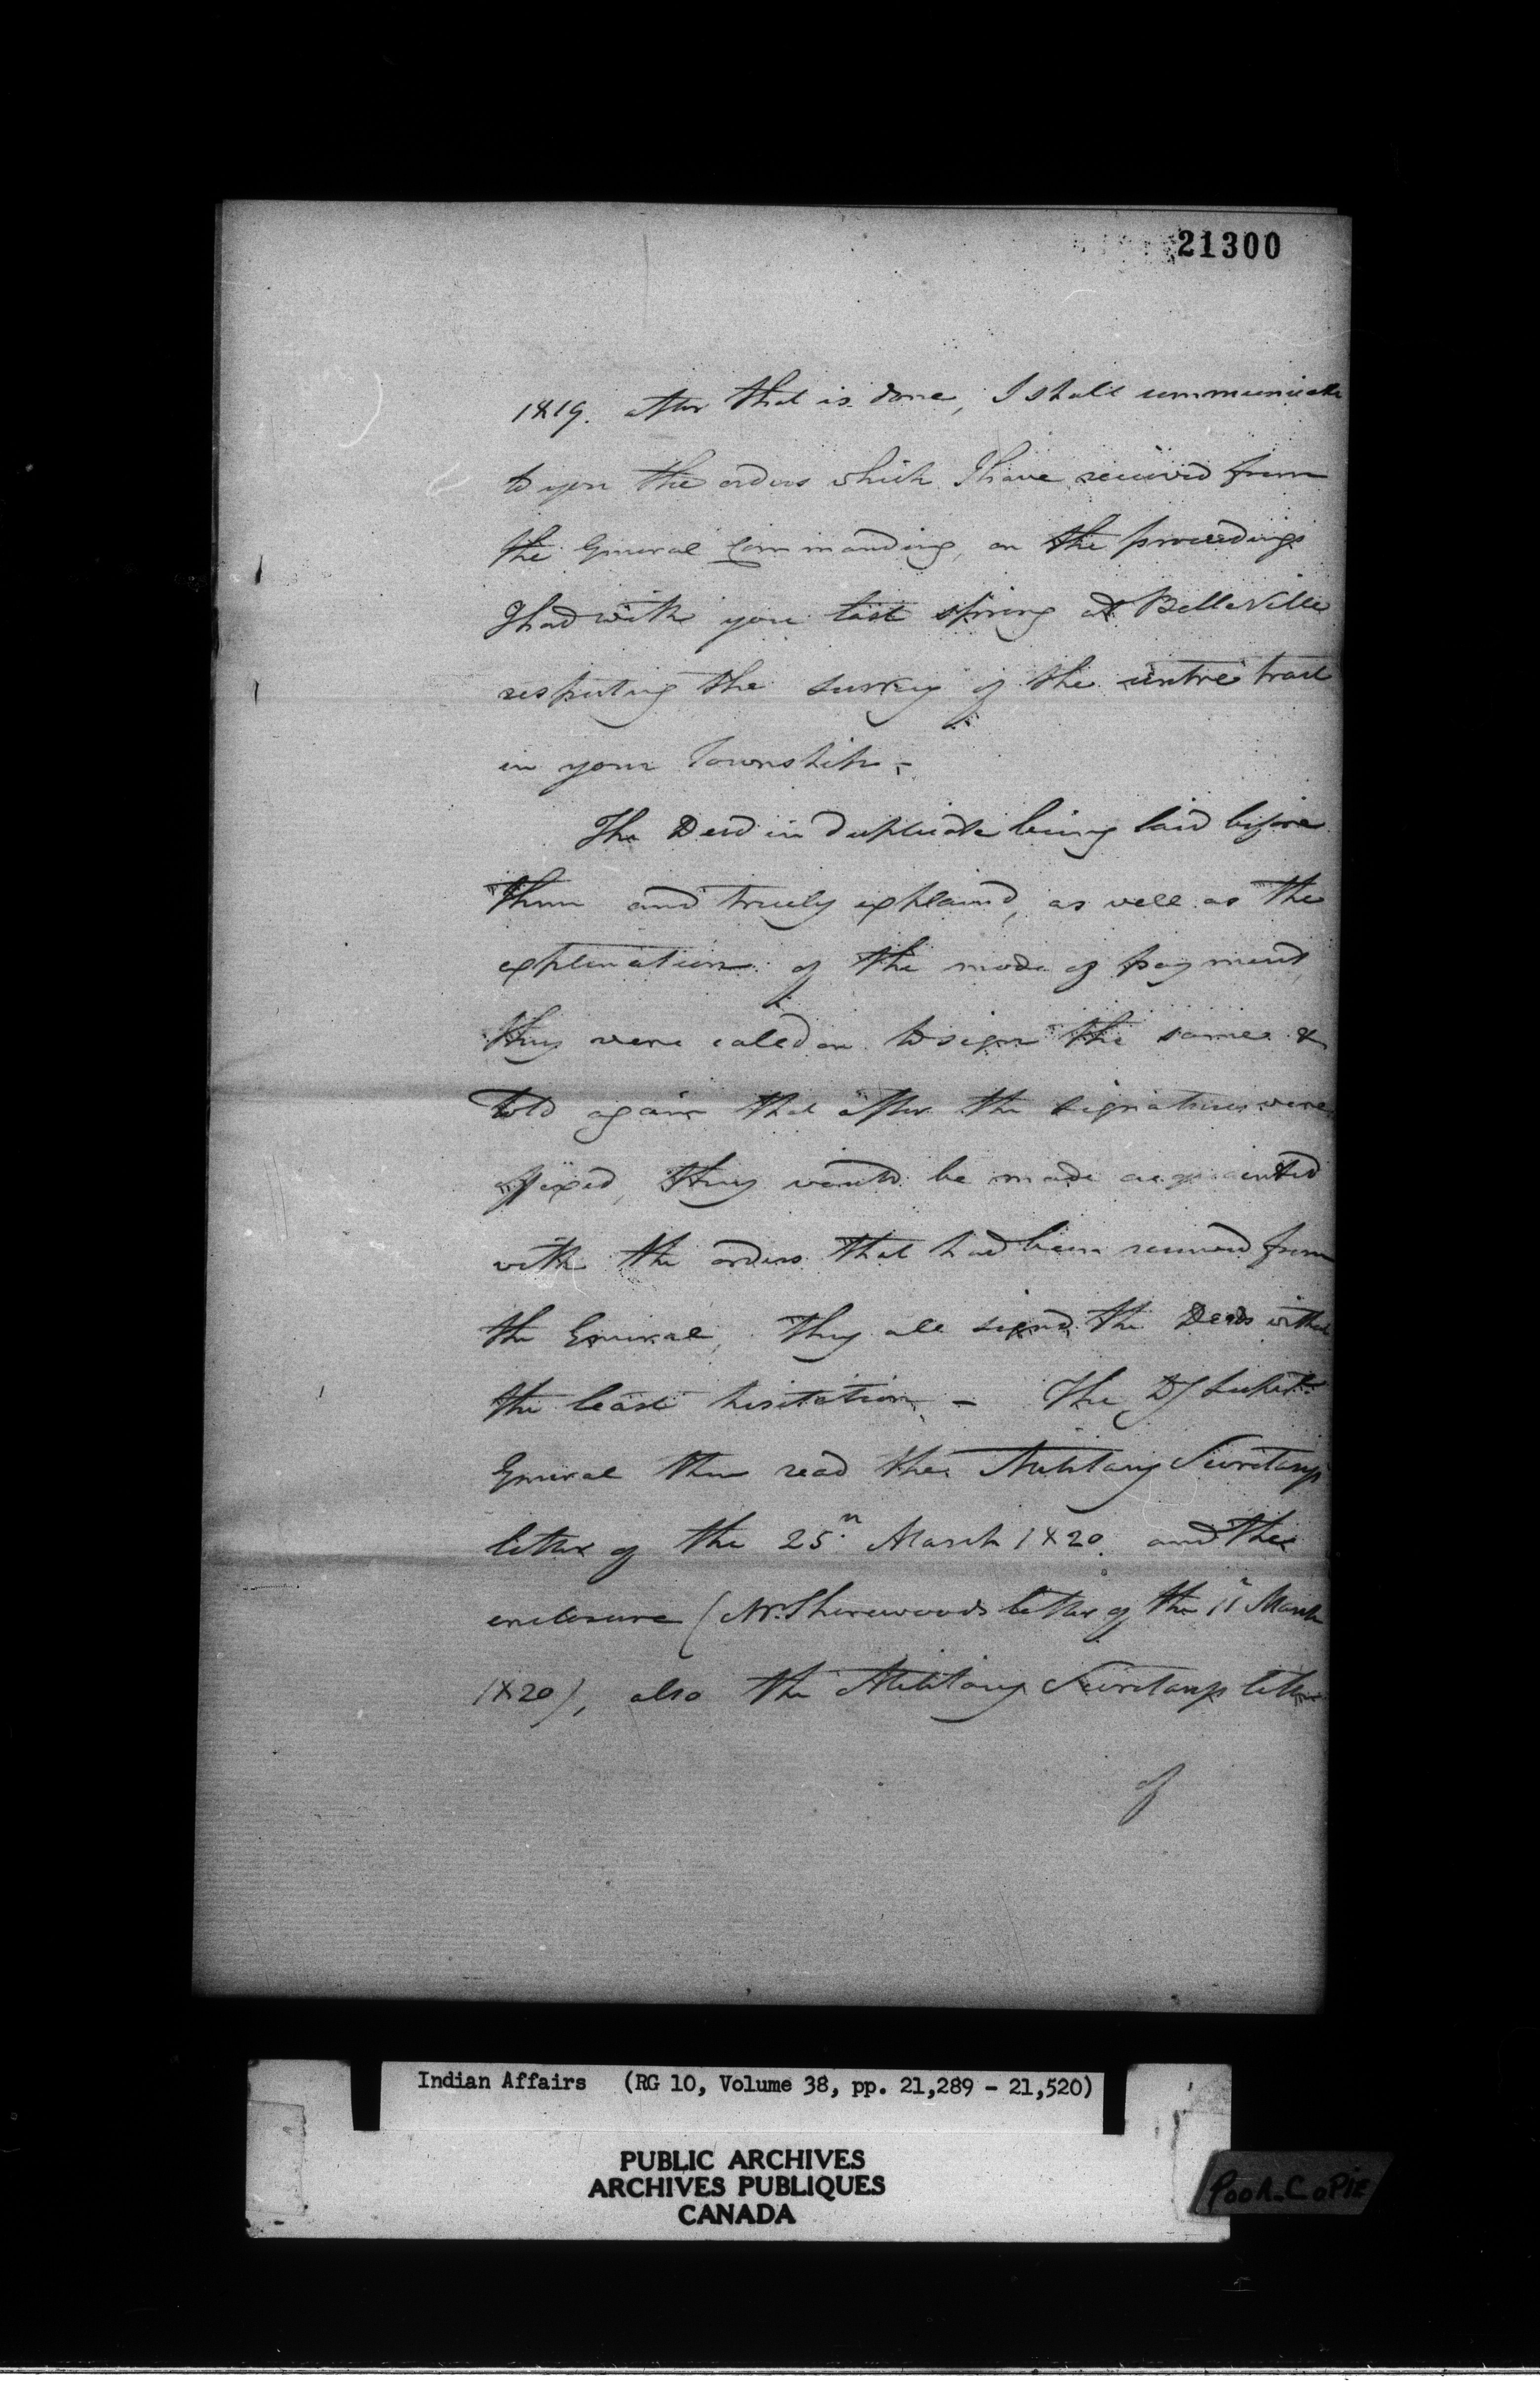 21300
1819. after that is done, I shall communicate
to you the orders which I have received from
the General Commanding, on the proceedings
I had with you last spring at BelleVille
respecting the survey of the entire tract
in your Township -
The Deed in duplicate being laid before
them and truely explained, as well as the
explination of the mode of payment,
they were called on to sign the same &
told again that after the signatures were
affixed, they would be made acquainted
with the orders that had been received from
the General, they all signd the Deeds without
the least hesitation - The Dy Superint.
General then read the Military Secretarys
letter of the 25th March 1820 and the
enclosure (Mr. Sherwoods letter of the 11 March
1820), also the Military Secretarys letter
of
Indian Affairs (RG 10, Volume 38, pp. 21,289 - 21,520)
PUBLIC ARCHIVES
ARCHIVES PUBLIQUES
CANADA
POOR_COPIE